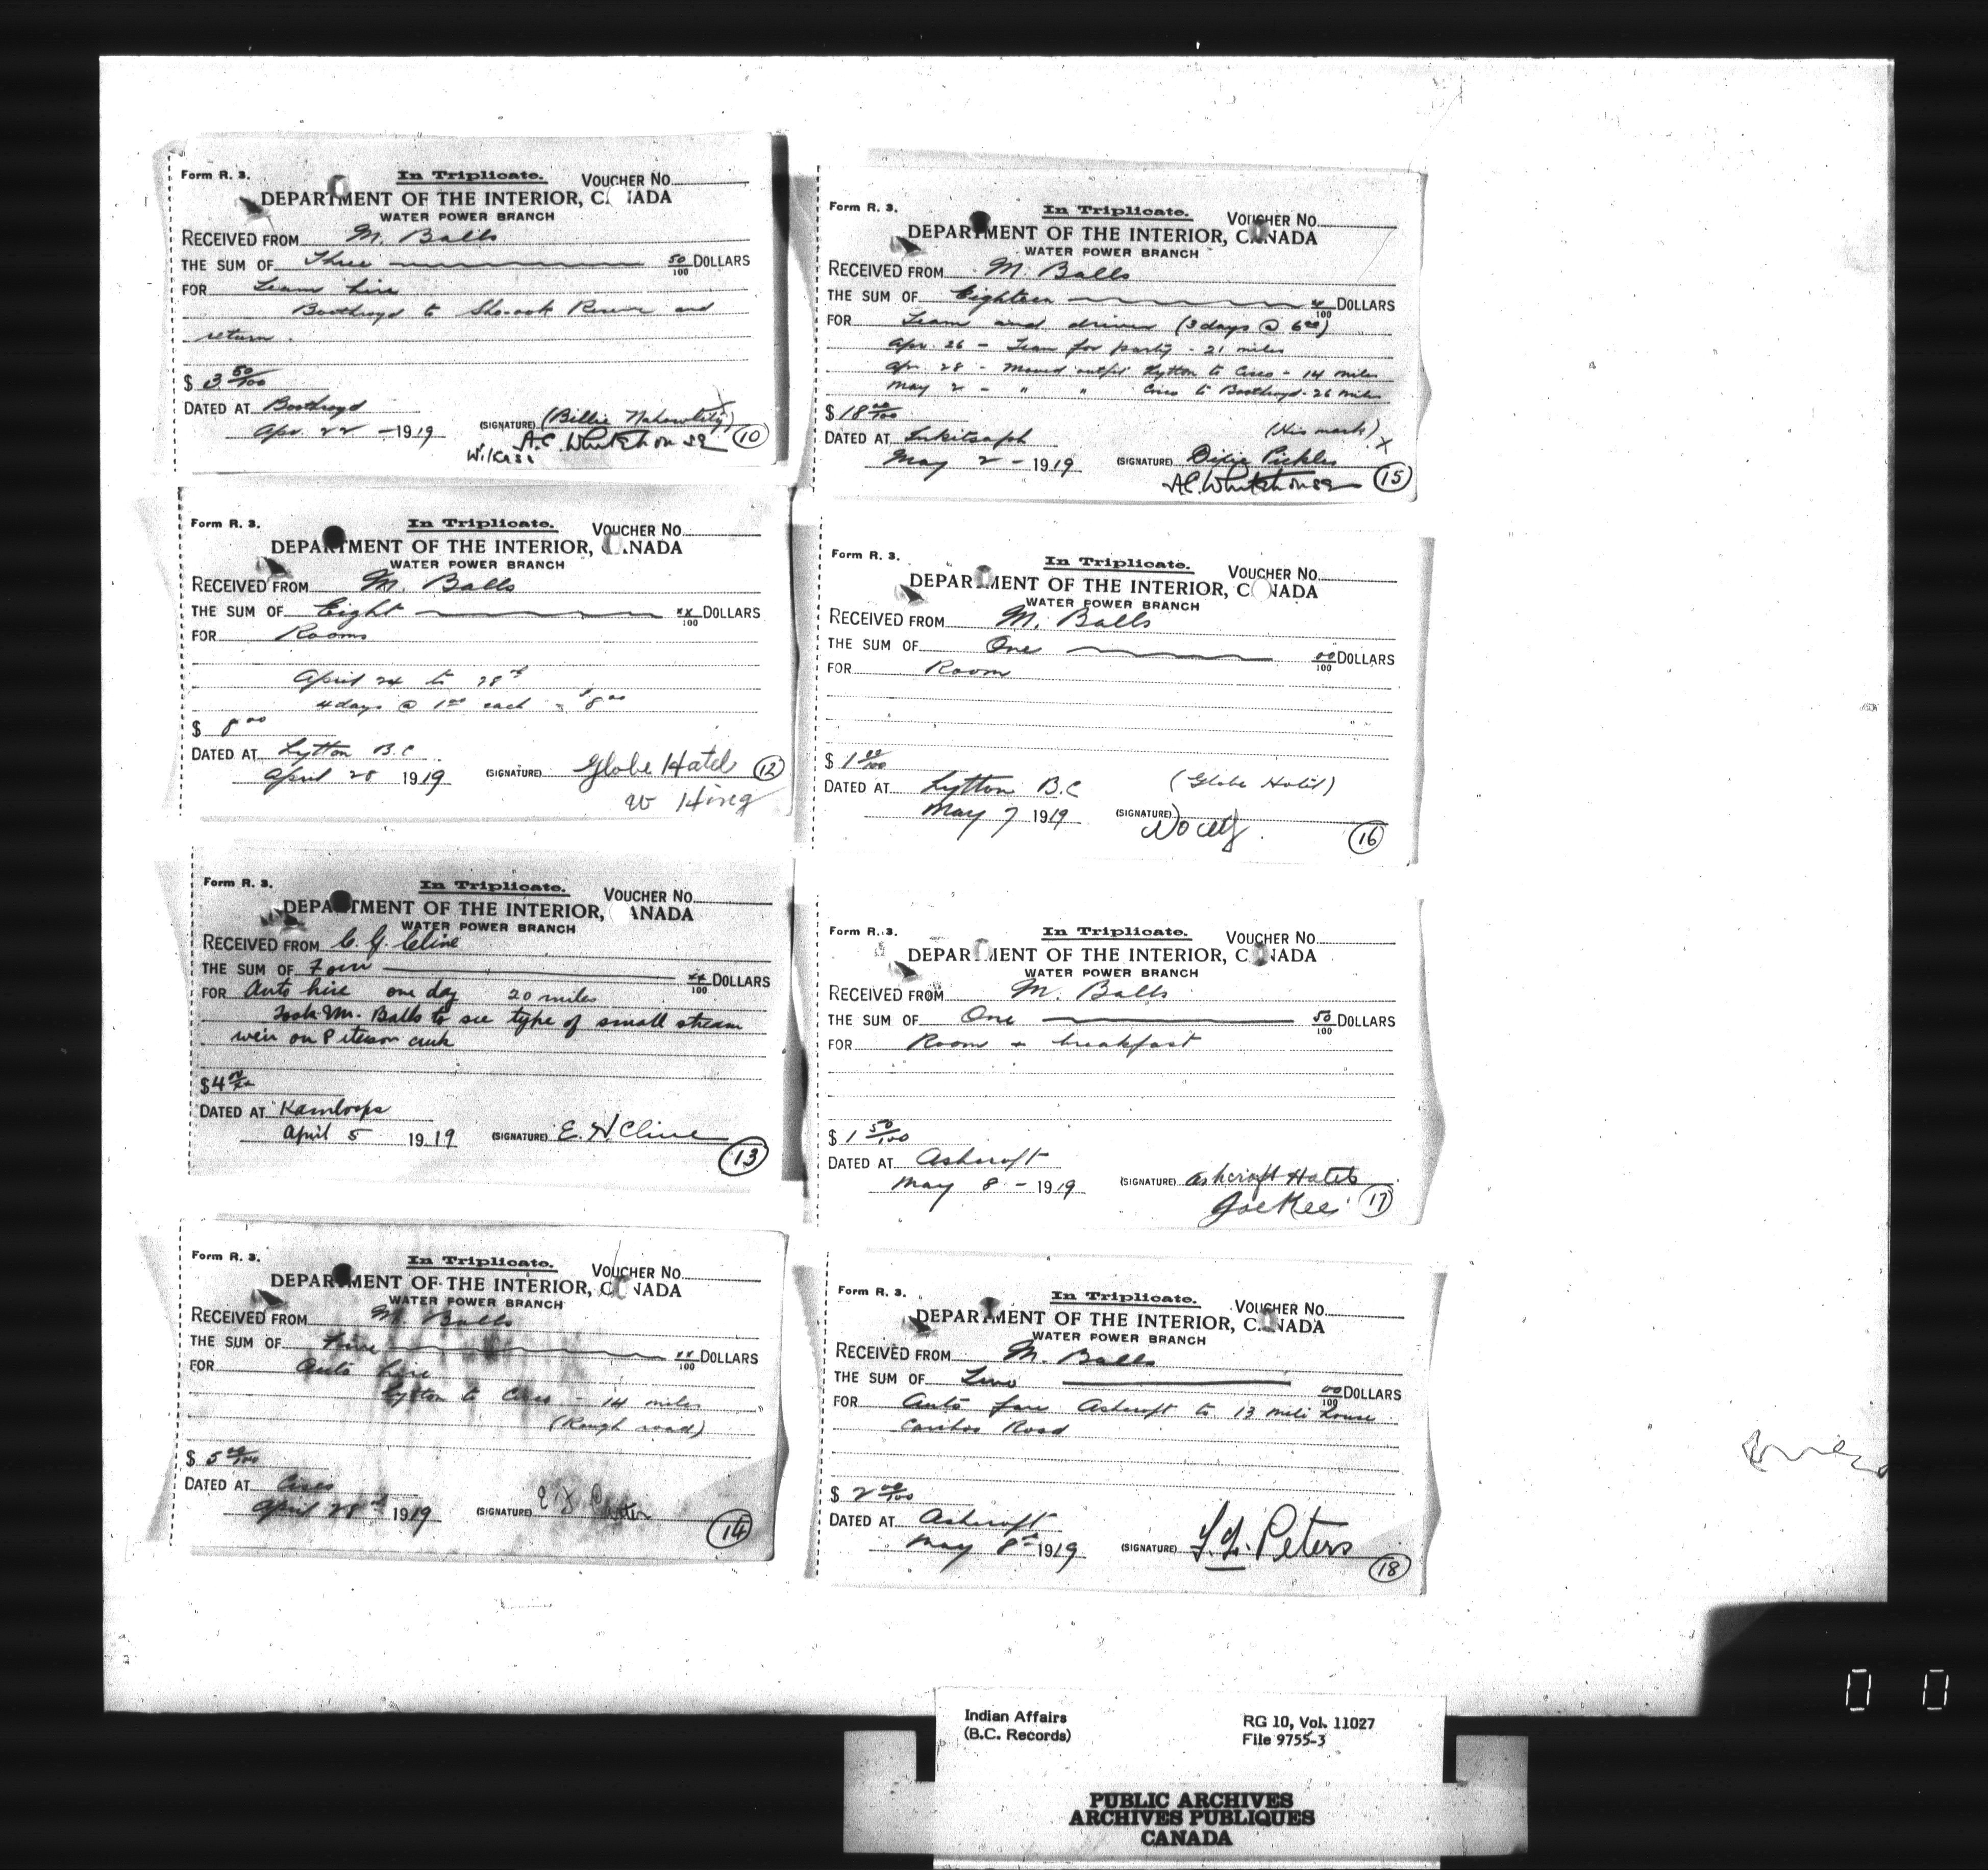 Form R. 3.
In Triplicate.
VOUCHER NO.
DEPARTMENT OF THE INTERIOR, CANADA
WATER POWER BRANCH
RECEIVED FROM M. Balls
THE SUM OF Three 50/100 DOLLARS
FOR Team hire
Boothroyd to Reserve and
return.
$ 3 50/100
DATED AT Boothroyd
Apr. 22 - 1919
(SIGNATURE) (Billie
A.C. Whitehouse
10
Form R. 3.
In Triplicate.
VOUCHER NO.
DEPARTMENT OF THE INTERIOR, CANADA
WATER POWER BRANCH
RECEIVED FROM M. Balls
THE SUM OF Eight xx/100 DOLLARS
FOR Rooms
April 24 to 28th
4 days @ 1.00 each = $8.00
$ 8.00
DATED AT Lytton B.C
April 28 1919
(SIGNATURE) Globe Hotel
W Hing
12
Form R. 3.
In Triplicate.
VOUCHER NO.
DEPARTMENT OF THE INTERIOR, CANADA
WATER POWER BRANCH
RECEIVED FROM C. G. Cline
THE SUM OF Four xx/100 DOLLARS
FOR Auto hire one day 20 miles
Took Mr. Balls to see type of small stream
weir on Peterson creek
$4
DATED AT Kamloops
April 5 1919
(SIGNATURE) E. H Cline
13
Form R. 3.
In Triplicate.
VOUCHER NO.
DEPARTMENT OF THE INTERIOR, CANADA
WATER POWER BRANCH
RECEIVED FROM M Balls
THE SUM OF Five xx/100 DOLLARS
FOR Auto hire
Lytton to Cisco - 14 miles
(Rough road)
$ 5 00/100
DATED AT Cisco
April 28th 1919
(SIGNATURE)
14
Form R. 3.
In Triplicate.
VOUCHER NO.
DEPARTMENT OF THE INTERIOR, CANADA
WATER POWER BRANCH
RECEIVED FROM M. Balls
THE SUM OF Eighteen x/100 DOLLARS
FOR Team and driver (3 days @ 6.00)
Apr. 26 - Team for party - 21 miles
Apr. 28 - Moved outfit Lytton to Cisco - 14 miles
May 2 - " " Cisco to Boothroyd - 26 miles
$ 18 00/100
(His mark) X
DATED AT
May 2 - 1919
(SIGNATURE) Dixie Pickles
A.C. Whitehouse
15
Form R. 3.
In Triplicate.
VOUCHER NO.
DEPARTMENT OF THE INTERIOR, CANADA
WATER POWER BRANCH
RECEIVED FROM M. Balls
THE SUM OF One 00/100 DOLLARS
FOR Room
$ 1 00/100
DATED AT Lytton B.C
(Globe Hotel)
May 7 1919
(SIGNATURE)
16
Form R. 3.
In Triplicate.
VOUCHER NO.
DEPARTMENT OF THE INTERIOR, CANADA
WATER POWER BRANCH
RECEIVED FROM M. Balls
THE SUM OF One 50/100 DOLLARS
FOR Room + breakfast
$ 1 50/100
DATED AT Ashcroft
May 8 - 1919
(SIGNATURE) Ashcroft Hotel
Joe Kee
17
Form R. 3.
In Triplicate.
VOUCHER NO.
DEPARTMENT OF THE INTERIOR, CANADA
WATER POWER BRANCH
RECEIVED FROM M. Balls
THE SUM OF Two 00/100 DOLLARS
FOR Auto fare Ashcroft to 13 mile house
Cariboo Road
$ 2 00/100
DATED AT Ashcroft
May 8th 1919
(SIGNATURE) Peters
18
0 0
Indian Affairs
(B.C. Records)
RG 10, Vol. 11027
File 9755-3
PUBLIC ARCHIVES
ARCHIVES PUBLIQUES
CANADA